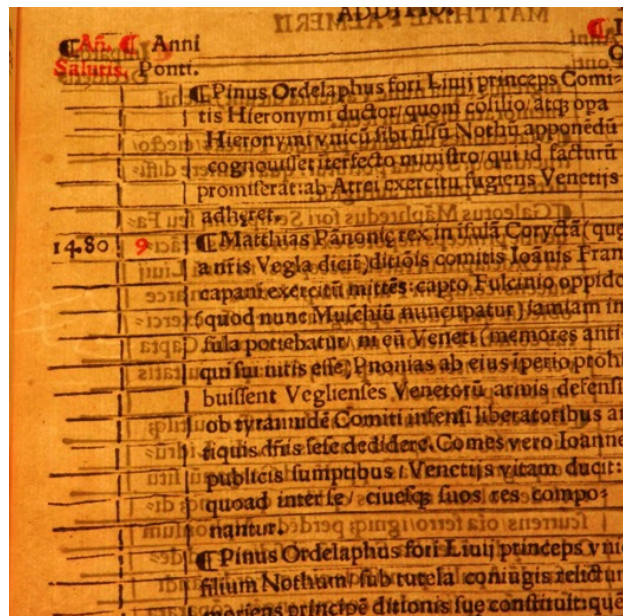 ADDITIO.
¶ Añ. ¶ Anni
Salutis. Ponti.
¶ Pinus Ordelaphus fori Liuij princeps Comi=
tis Hieronymi ductor/quom cōsilio/atq; opa
Hieronymi vnicū sibi filiū Nothū apponēdū
cognouisset iterfecto ministro/qui id facturū
promiserat: ab Atrei exercitu fugiens Venetijs
adhęret.
1480 9 ¶ Matthias Pānonię rex in isulā Coryctā (quę
a nr̄is Vegla dicit̄) ditiōis comitis Ioānis Fran
capani exercitū mittēs: capto Fulcinio oppido
(quod nunc Muschiū nuncupatur) iamiam in
sula potiebatur/ ni eū Veneti (memores anti
qui sui iuris esse) Pnonias ab eius īperio prohi
buissent Veglienses Venetorū armis defensi
ob tyrannidē Comiti infensi liberatoribus an
tiquis dn̄is sese dedidere. Comes vero Ioanne
publicis sumptibus/ Venetijs vitam ducit:
quoad inter se/ ciuesq; suos res compo=
nantur.
¶ Pinus Ordelaphus fori Liuij princeps vnic
filium Nothum/ sub tutela coniugis relictum
moriens principē ditionis suę constituit: que